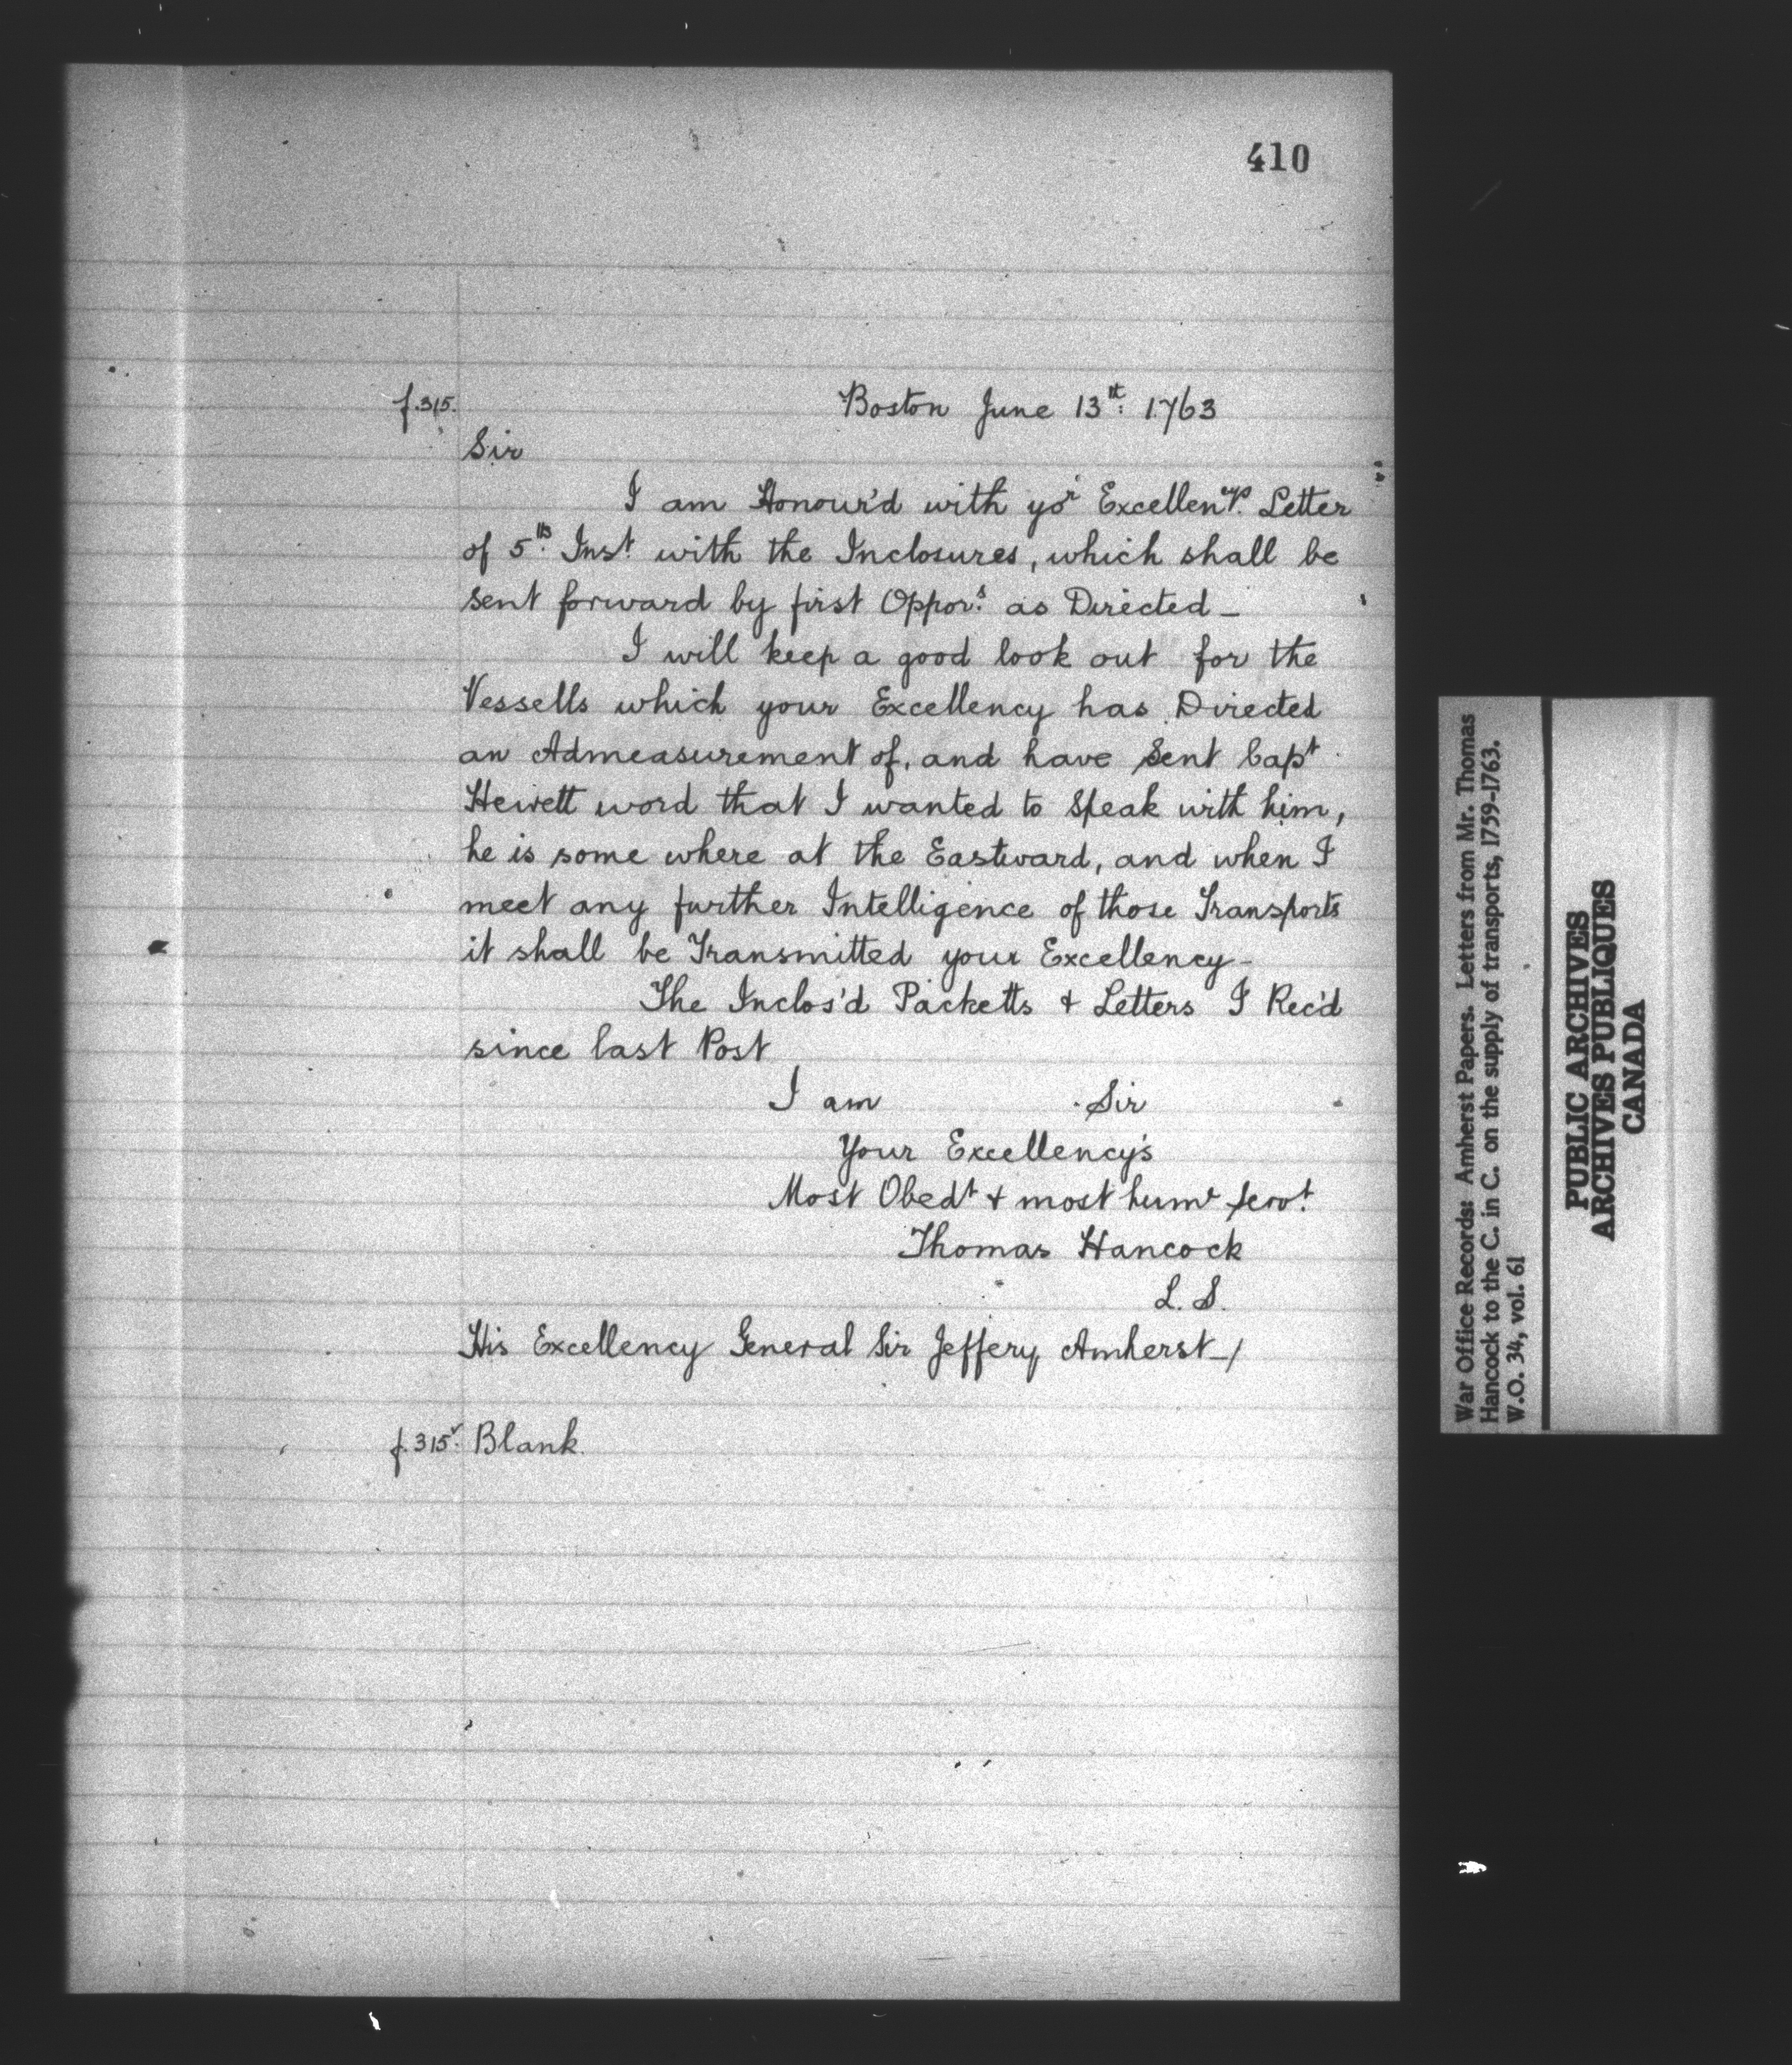 410
f.315. Boston June 13th: 1763
Sir
I am Honour'd with yor Excellencys. Letter
of 5th: Inst with the Inclosures, which shall be
sent forward by first Oppors. as Directed_
I will keep a good look out for the
Vessells which your Excellency has Directed
an Admeasurement of, and have sent Capt
Hewett word that I wanted to speak with him,
he is some where at the Eastward, and when I
meet any further Intelligence of those Transports
it shall be Transmitted your Excellency-
The Inclos'd Packetts & Letters I Rec'd
since last Post
I am Sir
Your Excellency's
Most Obedt & most humle servt.
Thomas Hancock
L. S.
His Excellency General Sir Jeffery Amherst_/
f.315v. Blank.
War Office Records: Amherst Papers. Letters from Mr. Thomas
Hancock to the C. in C. on the supply of transports, 1759-1763.
W.O. 34, vol. 61
PUBLIC ARCHIVES
ARCHIVES PUBLIQUES
CANADA